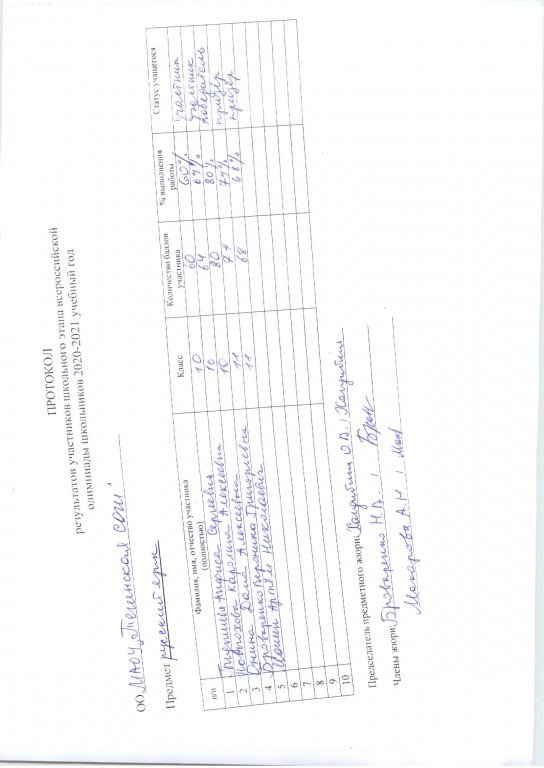 ПРОТОКОЛ
результатов участников школьного этапа всероссийской
олимпиады школьников 2020-2021 учебный год
ОО МАОУ „Теленская СОШ"
Предмет русский язык
п/п Фамилия, имя, отчество участника (полностью) Класс Количество баллов участника % выполнения работы Статус учащегося
1 Анфиса Сергеевна 10 60 60% участник
2 Каролина Алексеевна 10 64 64% участник
3 Дана Алексеевна 10 80 80% победитель
4 Броваренко Вероника Григорьевна 11 74 74% призёр
5 Артём Николаевич 11 68 68% призёр
6
7
8
9
10
Председатель предметного жюри: О.В. /
Члены жюри: Броваренко Н.В. / Бров
Макарова А.Н / Мак